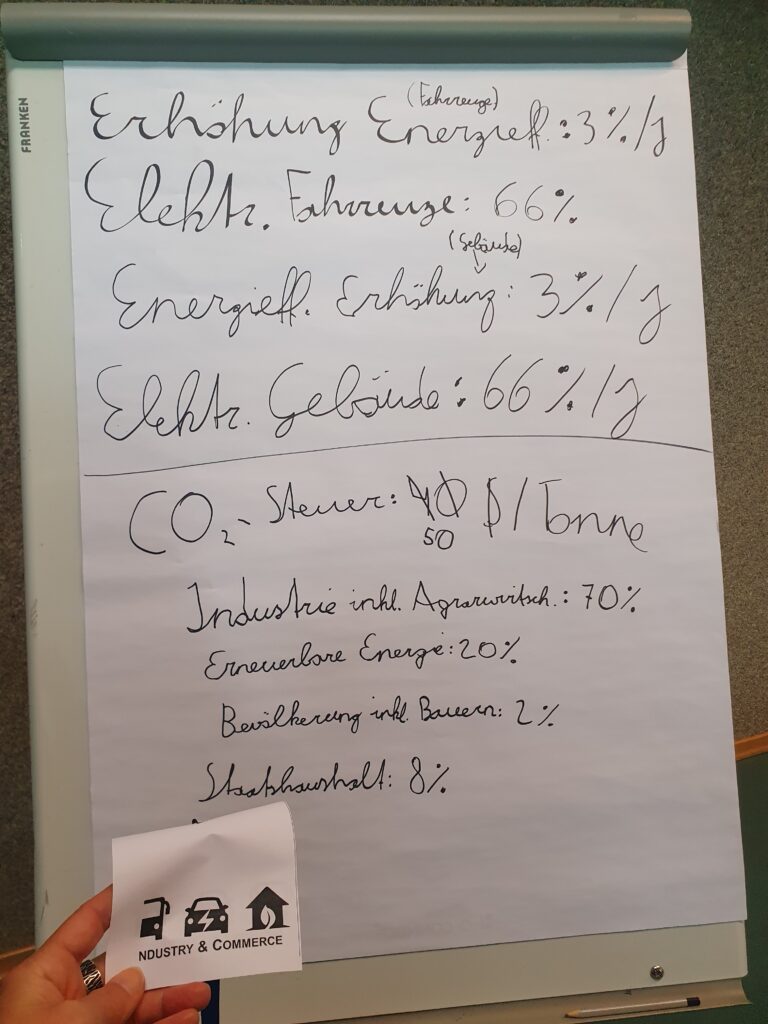 FRANKEN
(Fahrzeuge)
Erhöhung Energieeff.: 3%/J
Elektr. Fahrzeuge: 66%
(Gebäude)
Energieff. Erhöhung: 3%/J
Elektr. Gebäude: 66%/J
CO₂-Steuer: 40 $/Tonne
50
Industrie inkl. Agrarwirtsch.: 70%
Erneuerbare Energie: 20%
Bevölkerung inkl. Bauern: 2%
Staatshaushalt: 8%
NDUSTRY & COMMERCE